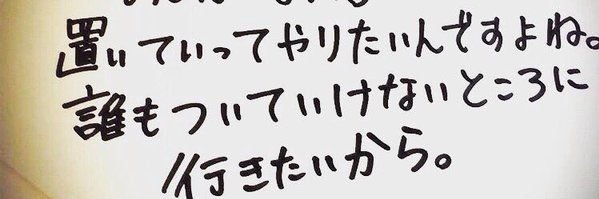 置いていってやりたいんですよね。
誰もついていけないところに
行きたいから。